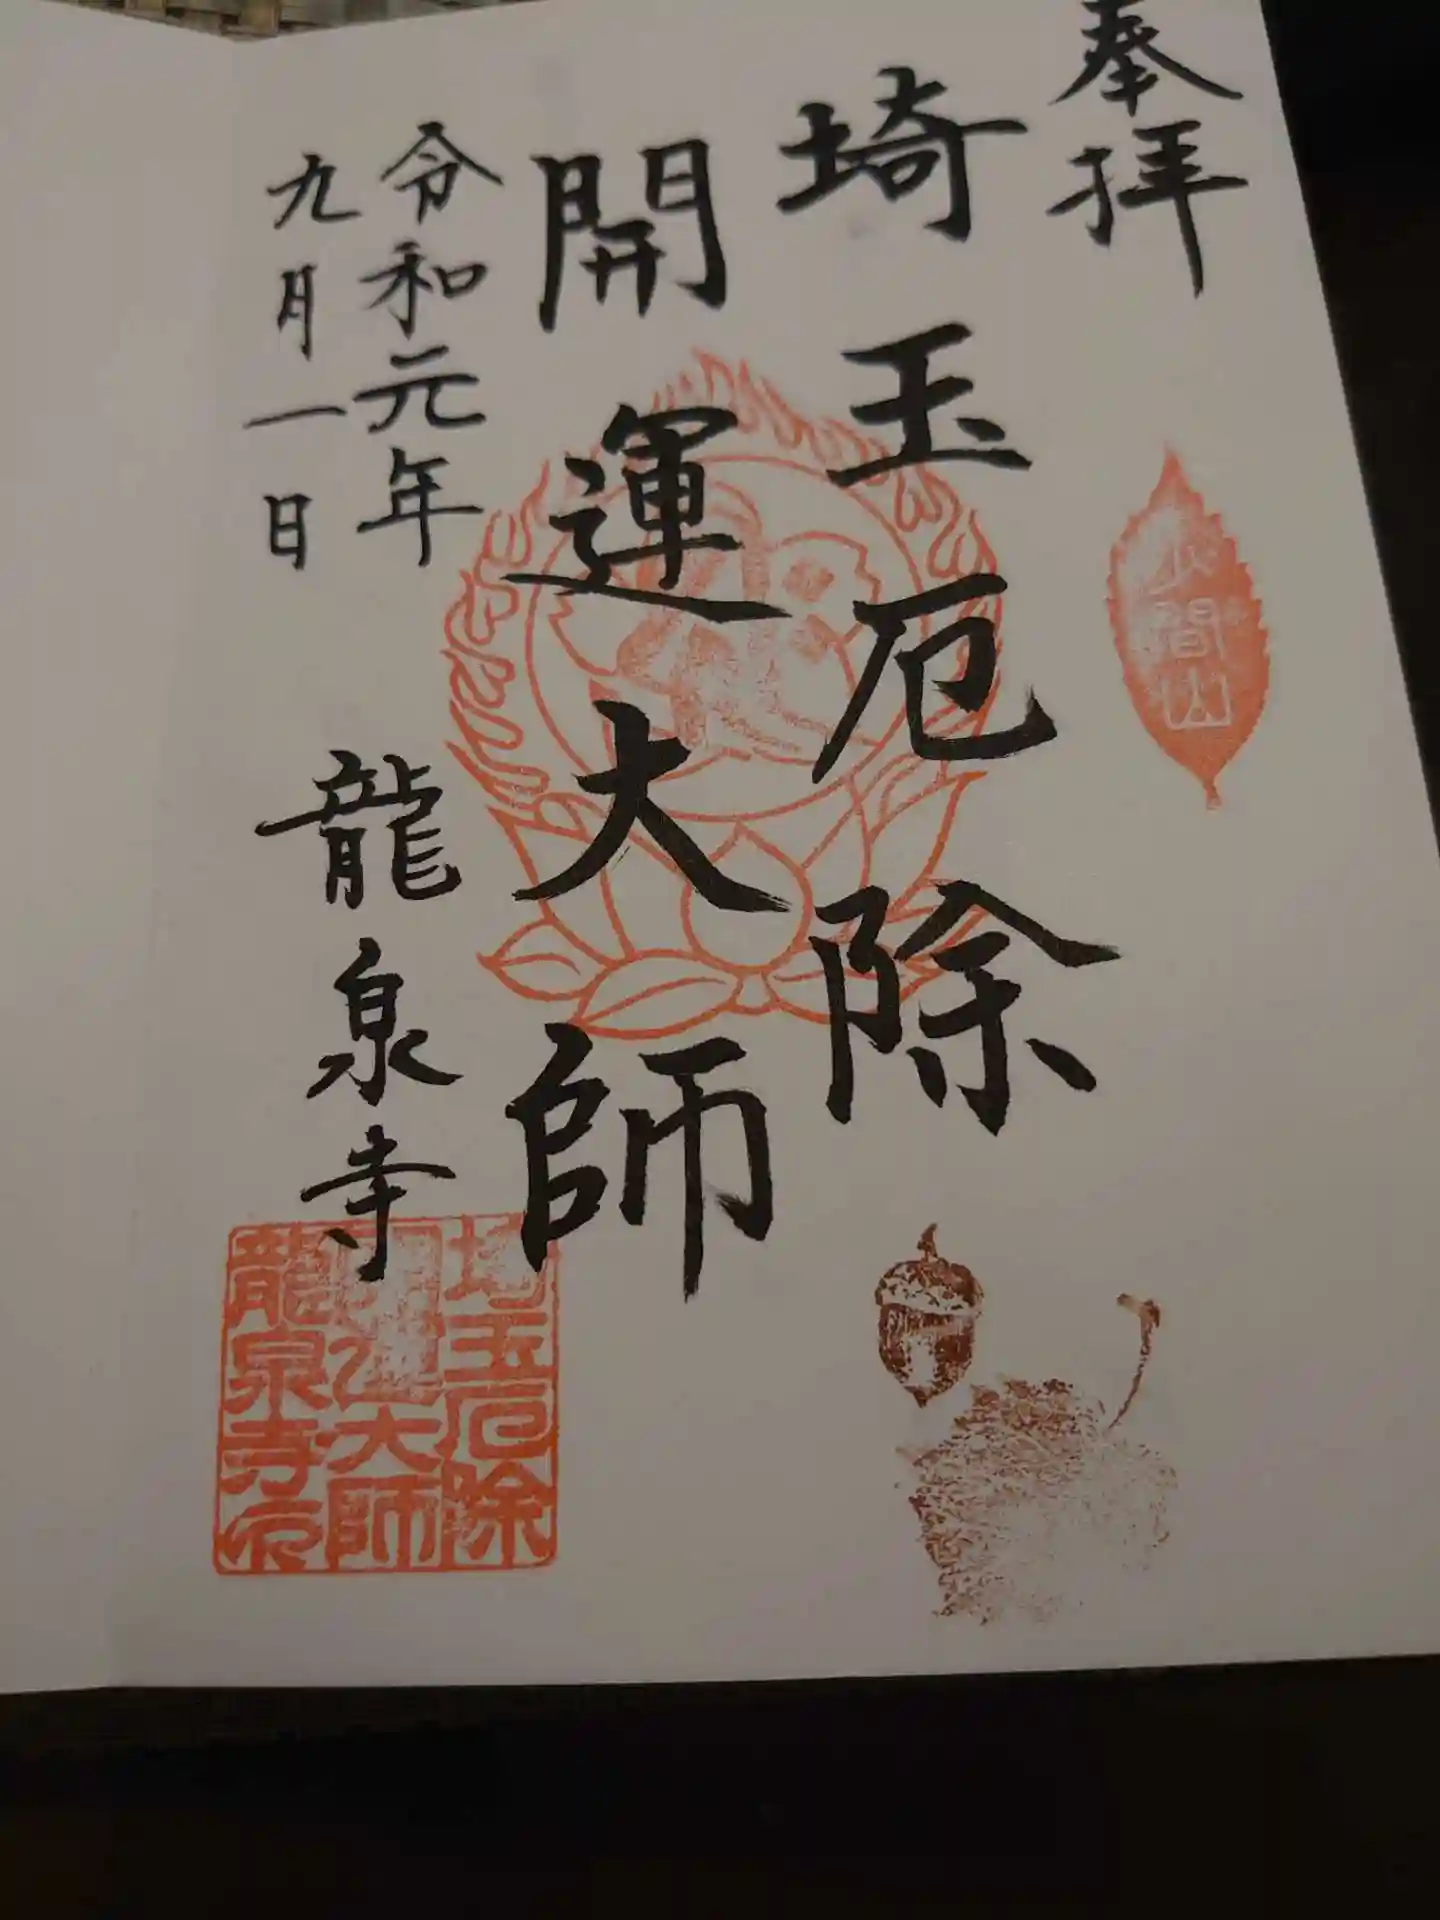 奉拝
埼玉厄除
開運大師
令和元年
九月一日
龍泉寺
少間山
埼玉厄除
開運大師
龍泉寺印